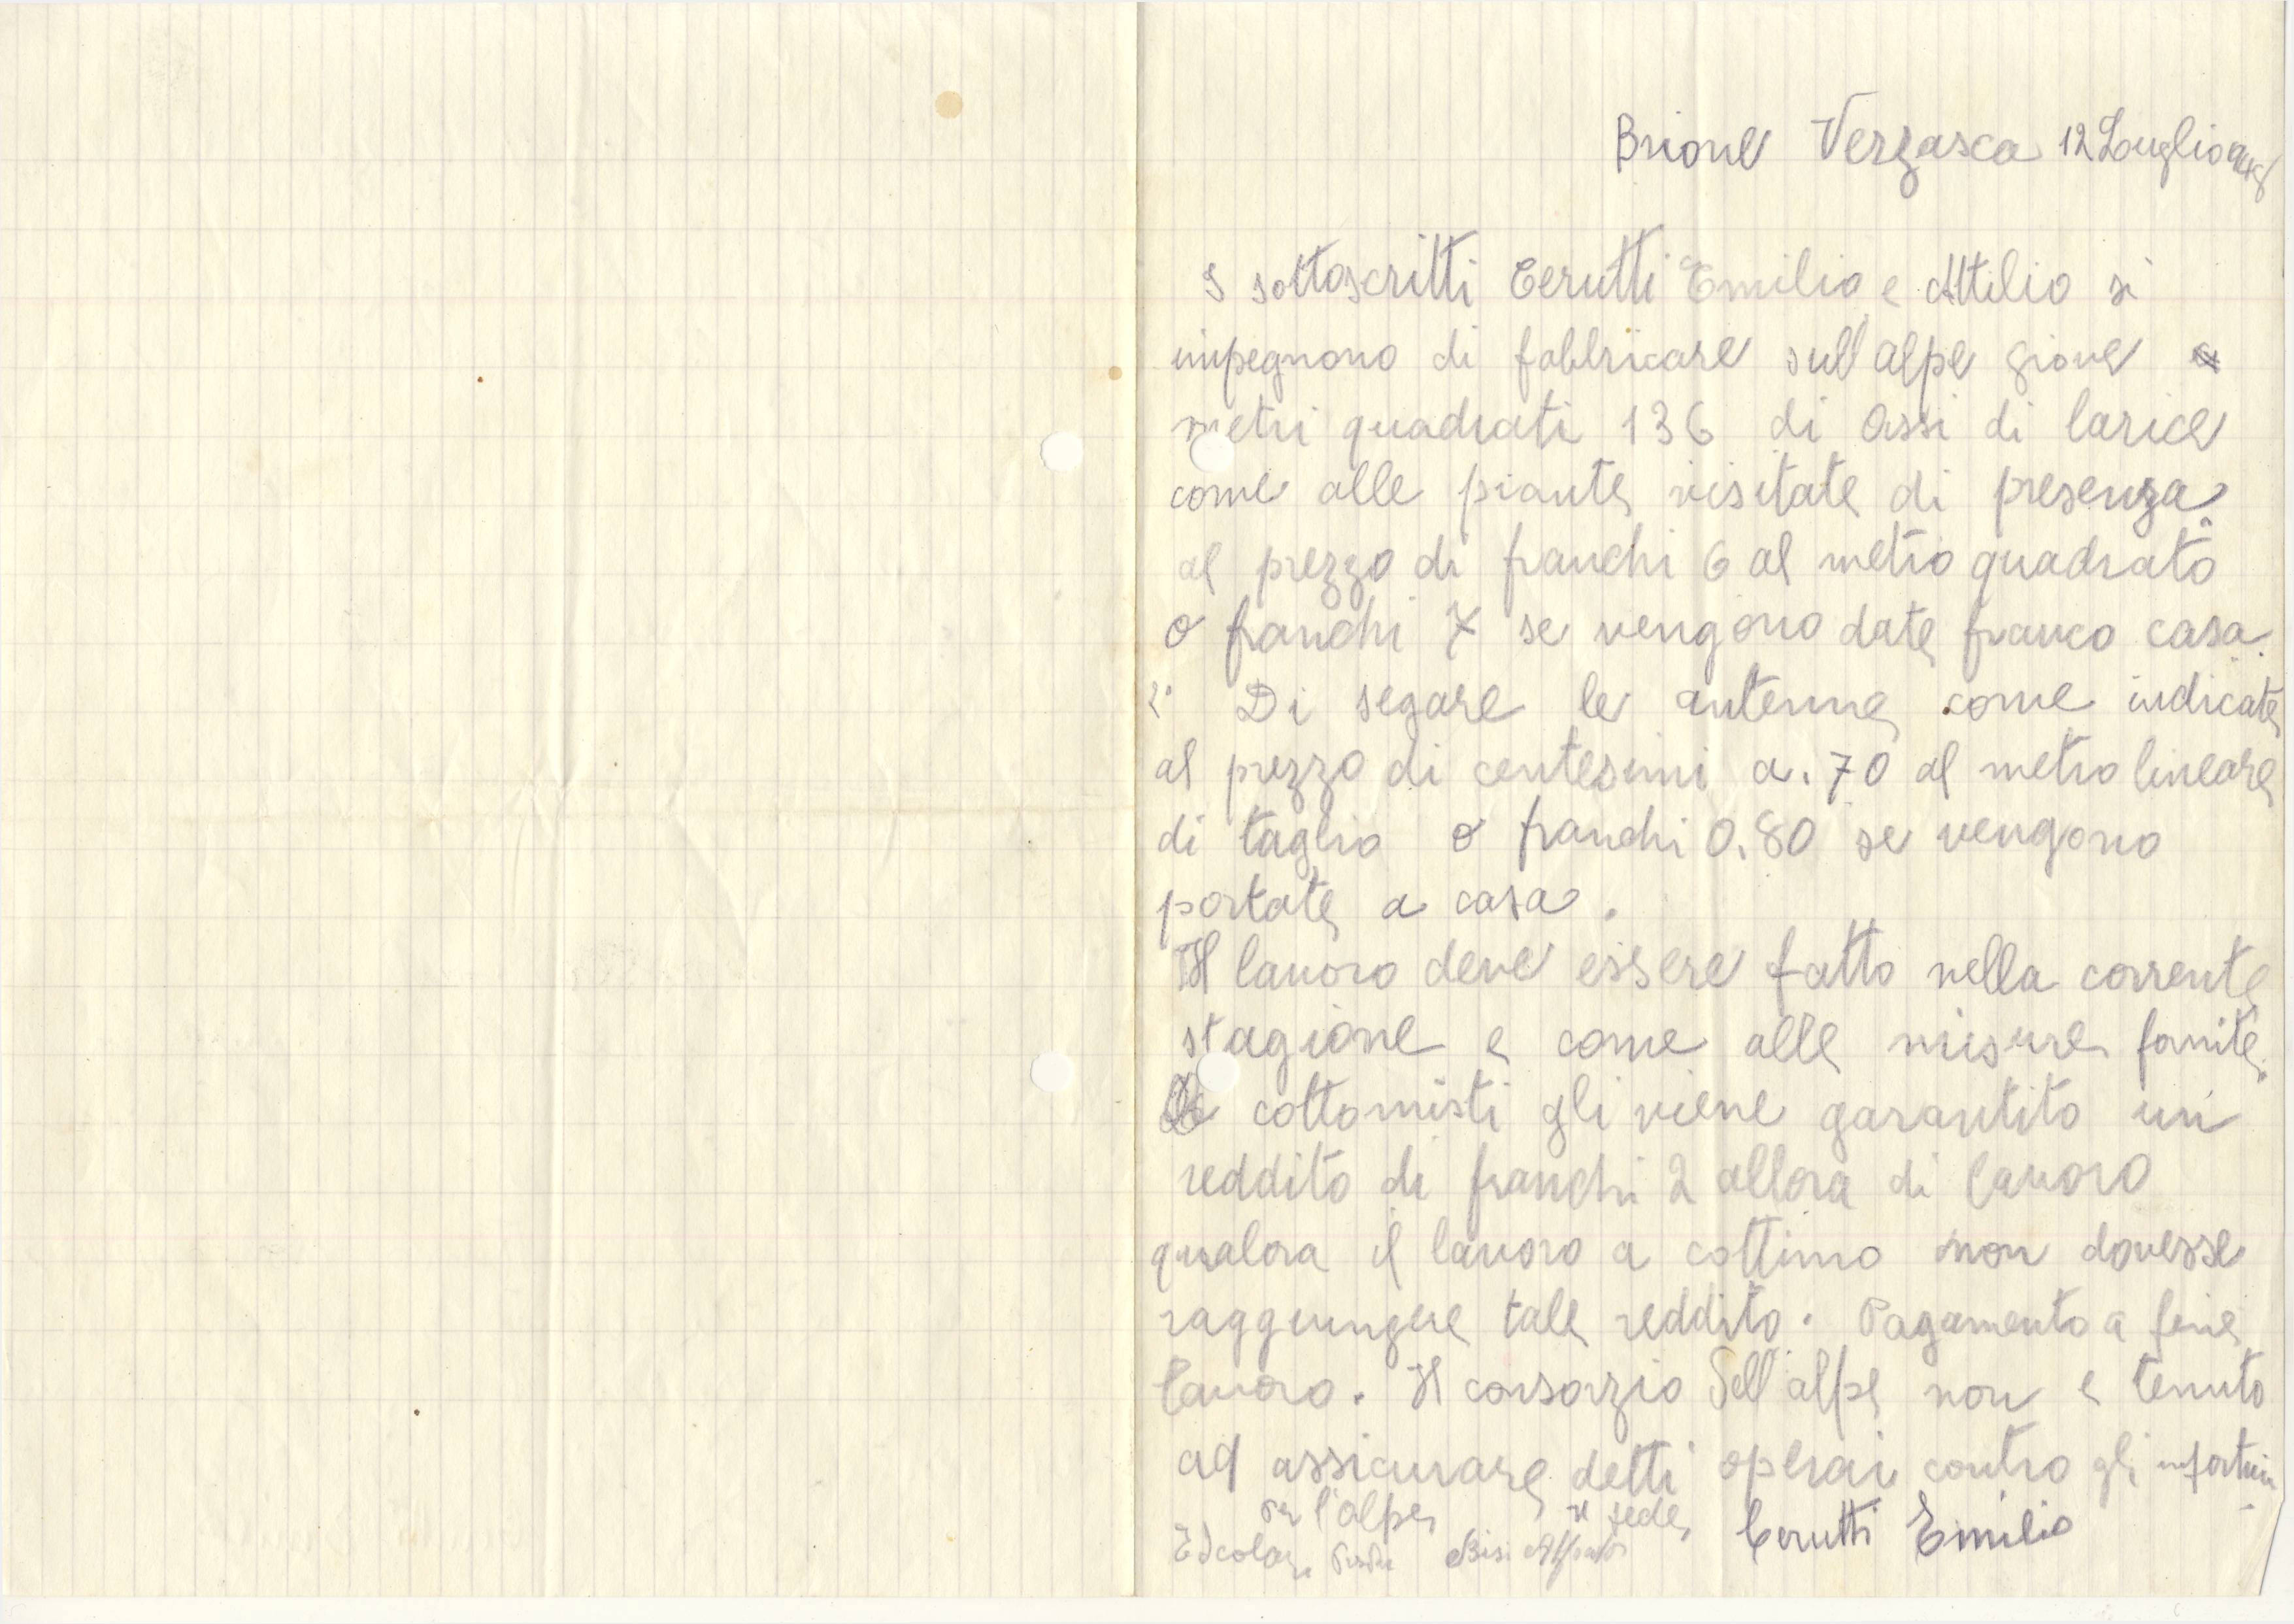 Brione Verzasca 12 Luglio 948
I sottoscritti Cerutti Emilio e Attilio si
impegnono di fabbricare sull'alpe Giove
metri quadrati 136 di assi di larice
come alle piante visitate di presenza
al prezzo di franchi 6 al metro quadrato
o franchi 7 se vengono date franco casa.
2° Di segare le antenne come indicate
al prezzo di centesimi a. 70 al metro lineare
di taglio o franchi 0.80 se vengono
portate a casa.
Il lavoro deve essere fatto nella corrente
stagione e come alle misure fornite.
cottomisti gli viene garantito un
reddito di franchi 2 allora di lavoro
qualora il lavoro a cottimo non dovesse
raggiungere tale reddito. Pagamento a fine
lavoro. Il consorzio dell'alpe non e tenuto
ad assicurare detti operai contro gli infortuni
Per l'alpe in fede Cerutti Emilio